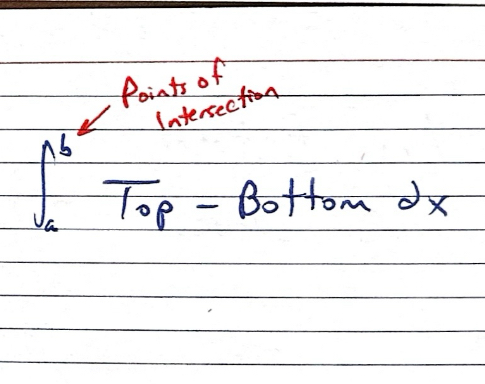 Points of
Intersection
∫ₐᵇ Top - Bottom dx